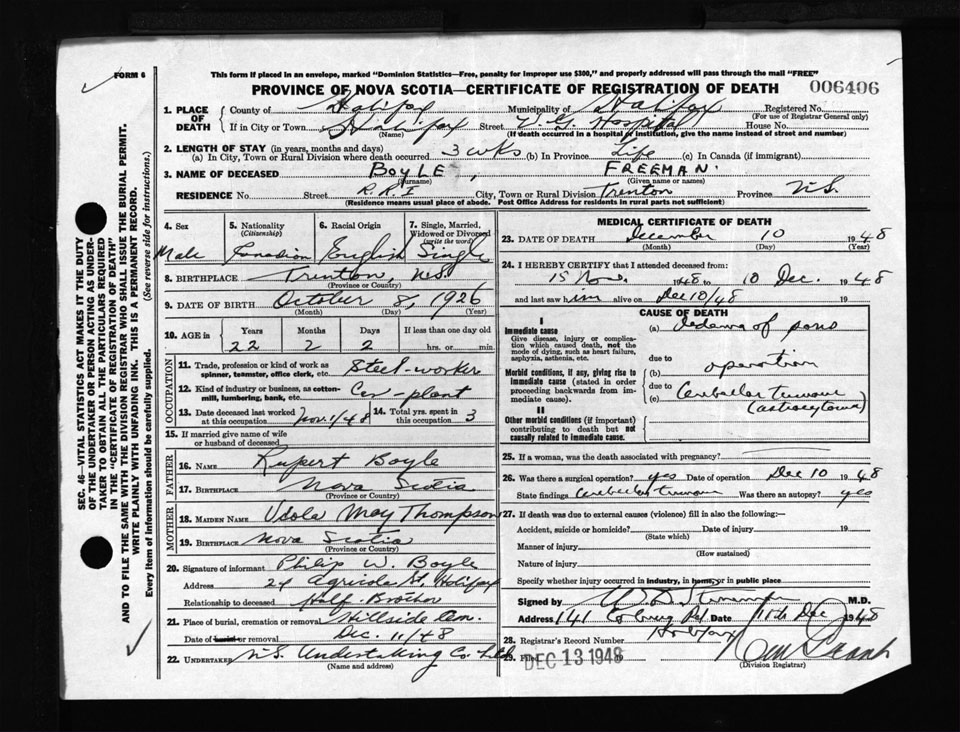 FORM 6
This form if placed in an envelope, marked "Dominion Statistics—Free, penalty for improper use $300," and properly addressed will pass through the mail "FREE"
PROVINCE OF NOVA SCOTIA—CERTIFICATE OF REGISTRATION OF DEATH
006406
1. PLACE OF DEATH County of Halifax Municipality of Halifax Registered No.
(For use of Registrar General only)
If in City or Town Halifax Street V. G. Hospital House No.
(Name) (If death occurred in a hospital or institution, give the name instead of street and number)
2. LENGTH OF STAY (in years, months and days)
(a) In City, Town or Rural Division where death occurred 3 wks (b) In Province Life (c) In Canada (if immigrant)
3. NAME OF DECEASED BOYLE, FREEMAN
(Surname) (Given name or names)
RESIDENCE No. Street R.R. 1 City, Town or Rural Division Trenton Province N.S.
(Residence means usual place of abode. Post Office Address for residents in rural parts not sufficient)
4. Sex 5. Nationality (Citizenship) 6. Racial Origin 7. Single, Married, Widowed or Divorced (write the word)
Male Canadian English Single
8. BIRTHPLACE Trenton, N.S.
(Province or Country)
9. DATE OF BIRTH October 8, 1926
(Month) (Day) (Year)
10. AGE in Years Months Days If less than one day old
22 2 2 hrs. or min.
OCCUPATION
11. Trade, profession or kind of work as spinner, teamster, office clerk, etc. Steel-worker
12. Kind of industry or business, as cotton-mill, lumbering, bank, etc. Car-plant
13. Date deceased last worked at this occupation Nov. 1/48 14. Total yrs. spent in this occupation 3
15. If married give name of wife or husband of deceased
FATHER
16. NAME Rupert Boyle
17. BIRTHPLACE Nova Scotia
(Province or Country)
MOTHER
18. MAIDEN NAME Usola May Thompson
19. BIRTHPLACE Nova Scotia
(Province or Country)
20. Signature of informant Philip W. Boyle
Address 24 Agricola St. Halifax
Relationship to deceased Half-Brother
21. Place of burial, cremation or removal Hillside Cem.
Date of burial or removal Dec. 11/48
22. UNDERTAKER N.S. Undertaking Co. Ltd
(Name and address)
MEDICAL CERTIFICATE OF DEATH
23. DATE OF DEATH December 10 1948
(Month) (Day) (Year)
24. I HEREBY CERTIFY that I attended deceased from:
15 Nov. 1948 10 Dec. 1948
and last saw him alive on Dec 10/48 19
CAUSE OF DEATH
I
Immediate cause
Give disease, injury or complication which caused death, not the mode of dying, such as heart failure, asphyxia, asthenia, etc.
(a) Oedema of pons
due to
Morbid conditions, if any, giving rise to immediate cause (stated in order proceeding backwards from immediate cause).
operation
(b) due to
(c) Cerebellar tumour
(astrocytoma)
II
Other morbid conditions (if important) contributing to death but not causally related to immediate cause.
25. If a woman, was the death associated with pregnancy?
26. Was there a surgical operation? yes Date of operation Dec 10 1948
State findings Cerebellar tumour Was there an autopsy? yes
27. If death was due to external causes (violence) fill in also the following:—
Accident, suicide or homicide? Date of injury 19
(State which)
Manner of injury
(How sustained)
Nature of injury
Specify whether injury occurred in industry, in home, or in public place
Signed by M.D.
Address 141 Coburg Rd Date 11th Dec 1948
Halifax
28. Registrar's Record Number
29. Filed DEC 13 1948
(Division Registrar)
SEC. 46—VITAL STATISTICS ACT MAKES IT THE DUTY
OF THE UNDERTAKER OR PERSON ACTING AS UNDER-
TAKER TO OBTAIN ALL THE PARTICULARS REQUIRED
IN THE "CERTIFICATE OF REGISTRATION OF DEATH"
AND TO FILE THE SAME WITH THE DIVISION REGISTRAR WHO SHALL ISSUE THE BURIAL PERMIT.
WRITE PLAINLY WITH UNFADING INK. THIS IS A PERMANENT RECORD.
Every item of information should be carefully supplied. (See reverse side for instructions.)